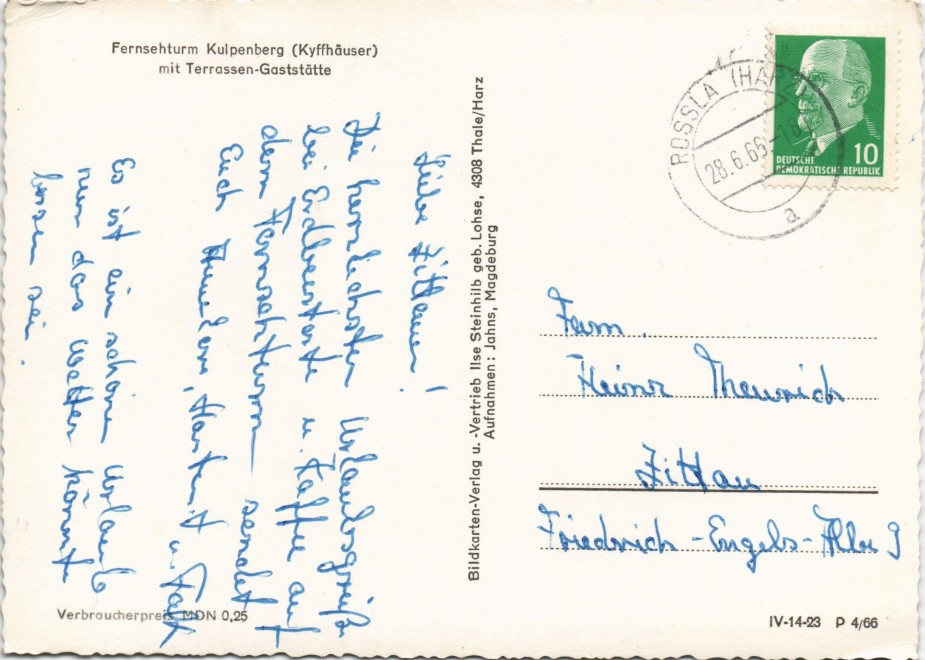 Fernsehturm Kulpenberg (Kyffhäuser)
mit Terrassen-Gaststätte
Liebe Zittauer!
Die herzlichsten Urlaubsgrüße
bei Erdbeertorte u. Kaffee auf
dem Fernsehturm sendet
Euch Hartmut u.
Es ist ein schöner Urlaub
nur das Wetter könnte
besser sein.
Verbraucherpreis MDN 0,25
Bildkarten-Verlag u. -Vertrieb Ilse Steinhilb geb. Lohse, 4308 Thale/Harz
Aufnahmen: Jahns, Magdeburg
ROSSLA (HARZ)
28.6.66-18
a
10
DEUTSCHE
DEMOKRATISCHE REPUBLIK
Fam.
Heinz
Zittau
Friedrich-Engels-Allee 9
IV-14-23 P 4/66